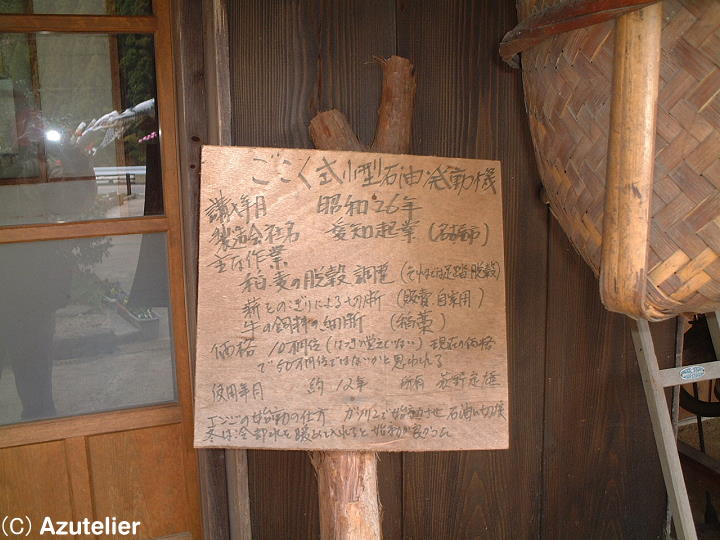 ごこく式小型石油発動機
購入年月 昭和26年
製造会社名 愛知起業
主な作業
稲麦の脱穀調整 (それまでは足踏脱穀)
薪をのこぎりによる切断 (販売 自家用)
牛の飼料の細断 (稲藁)
価格 10万円位 (はっきり覚えていない) 現在の価格
で50万円位ではないかと思われる
使用年月 約12年 所有 荻野定雄
エンジンの始動の仕方 ガソリンで始動させ石油に切換
冬は冷却水を暖めて入れると始動が良かった
(C) Azutelier